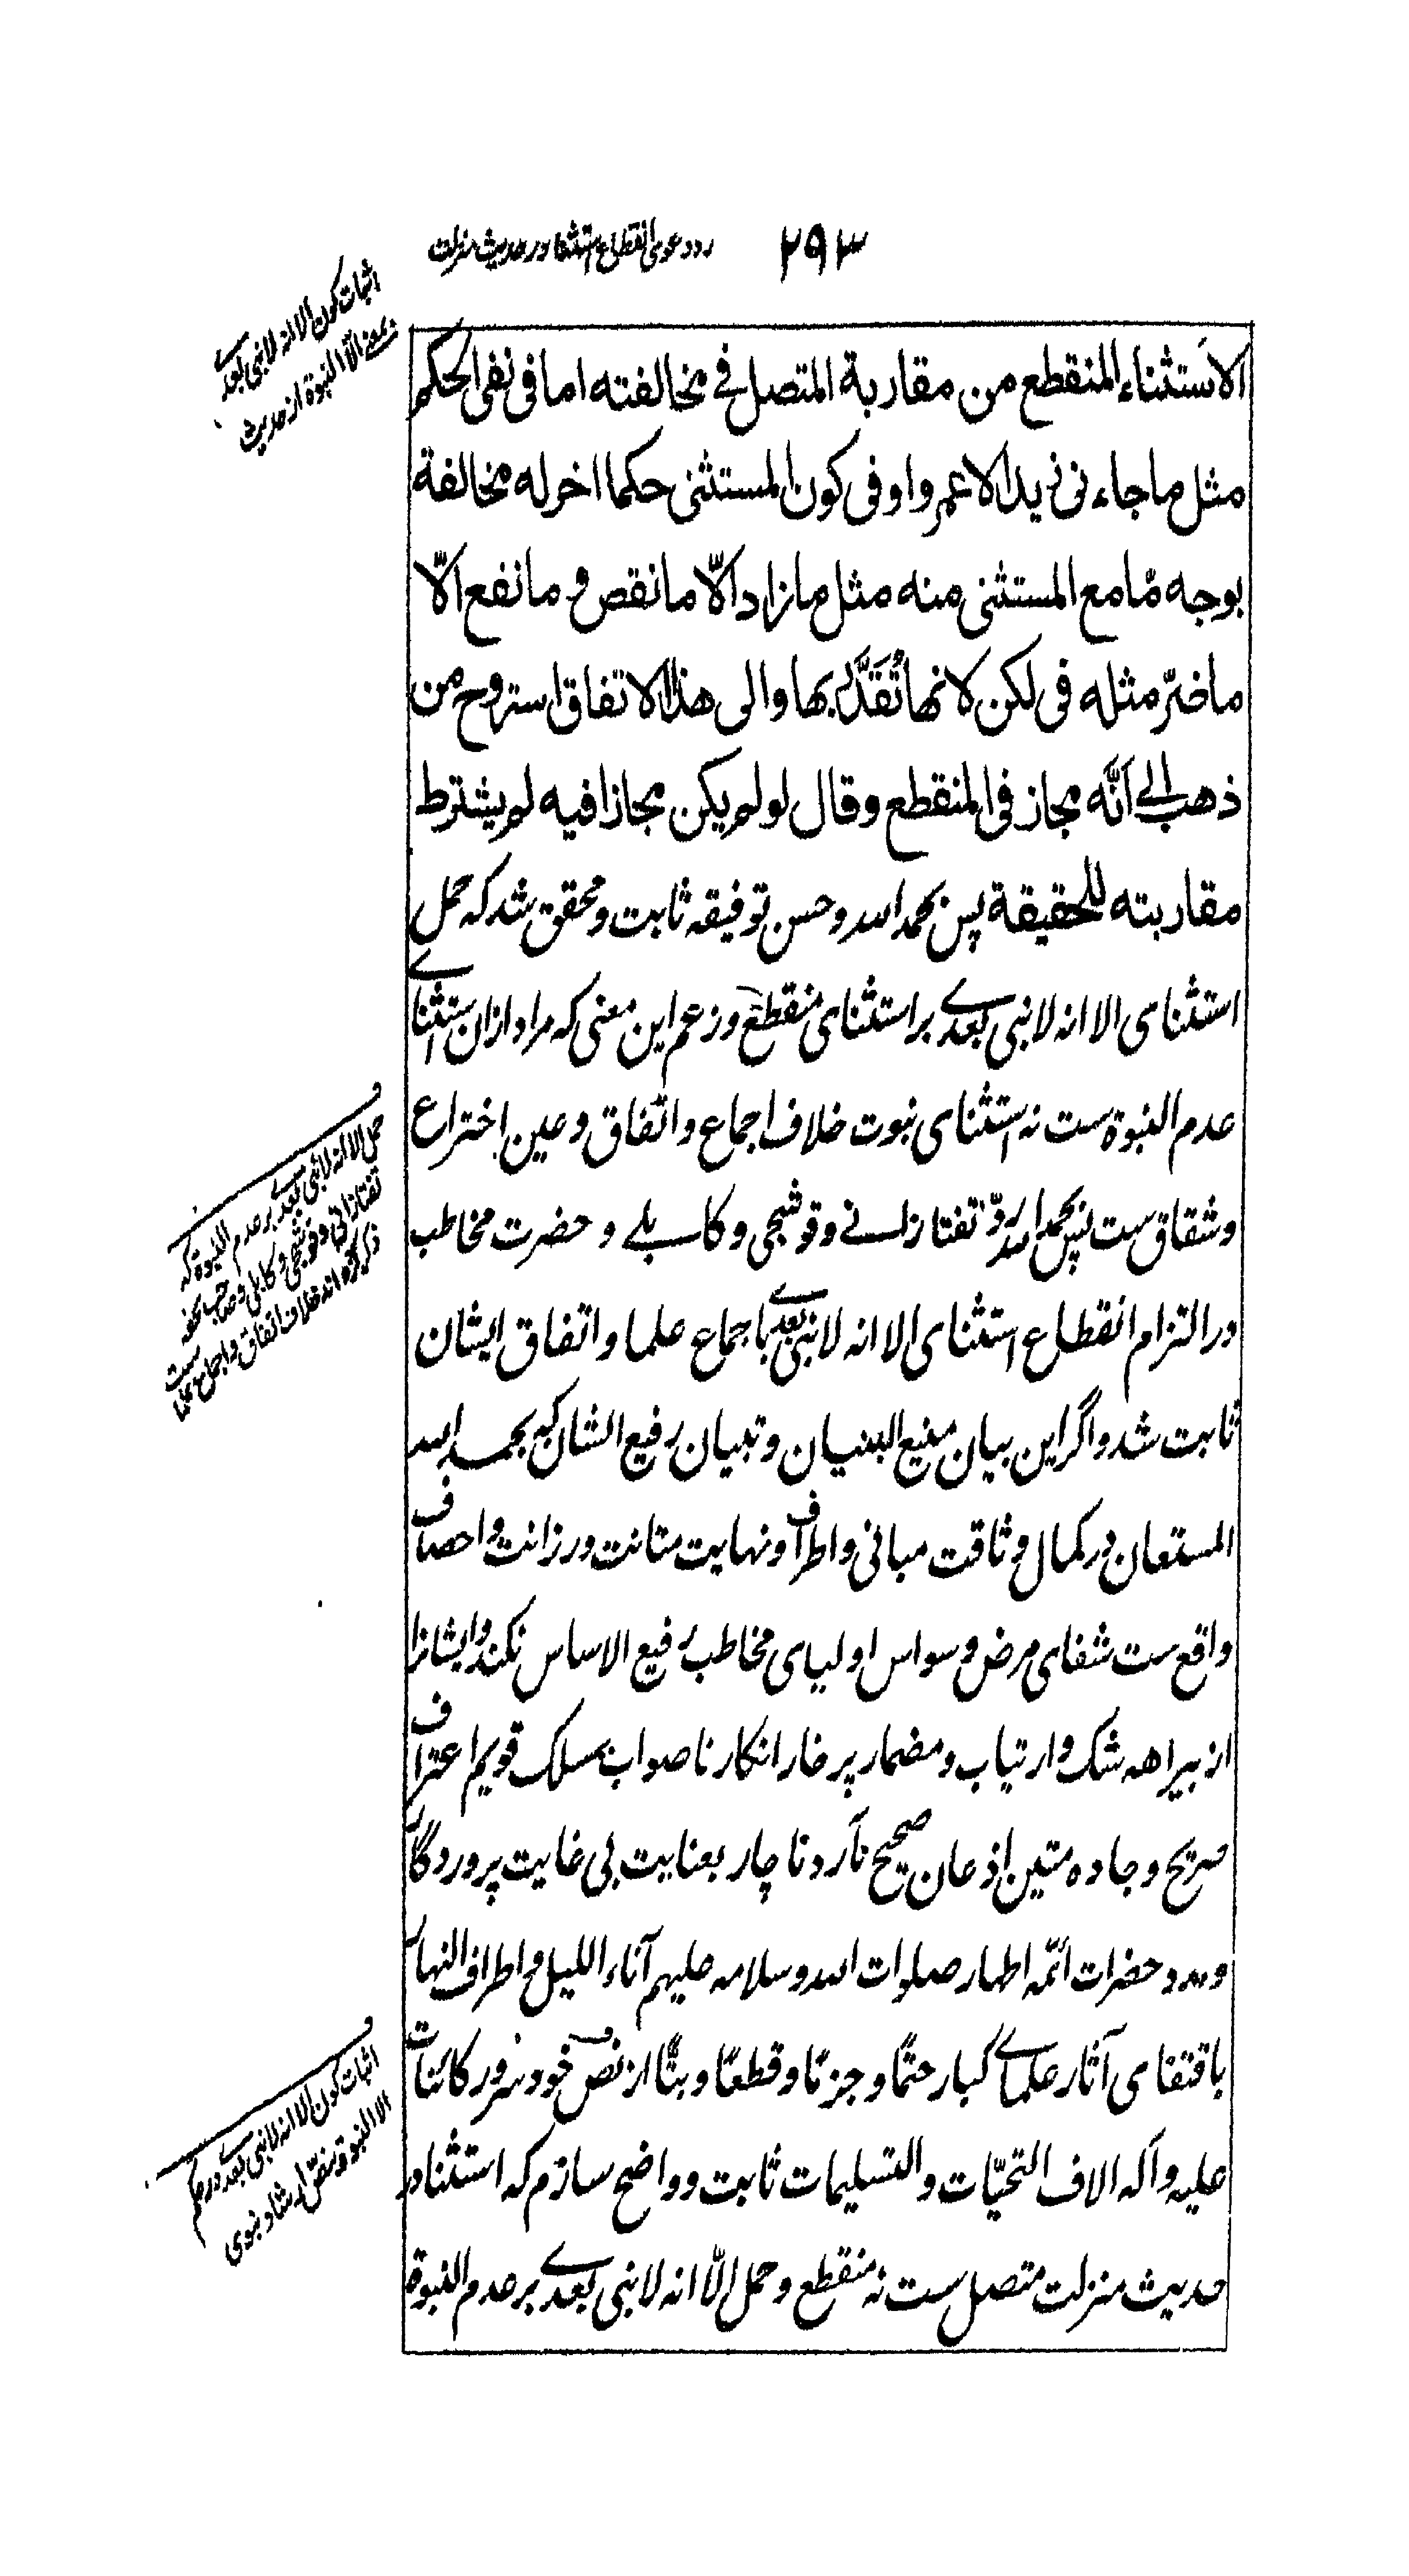 ۲۹۳
رد دعوی انقطاع استثنا در حدیث منزلت
اثبات کون الا انه لا نبی بعدی
بمعنی الا النبوة از حدیث
الاستثناء المنقطع من مقاربة المتصل فی مخالفته اما فی نفی الحکم
مثل ما جاءنی زید الا عمروا و فی کون المستثنی حکما اخر له مخالفة
بوجه مّا مع المستثنی منه مثل ما زاد الّا ما نقص و ما نفع الّا
ما ضرّ مثله فی لکن لانها تُقَدَّر بها والی هذا الاتفاق استروح من
ذهب الی اَنَّه مجاز فی المنقطع وقال لو لم یکن مجازا فیه لم یشترط
مقاربته للحقیقة پس بحمد الله و حسن توفیقه ثابت و محقق شد که حمل
استثنای الا انه لا نبی بعدی بر استثنای منقطع و زعم این معنی که مراد ازان استثنا
عدم النبوة ست نه استثنای نبوت خلاف اجماع و اتفاق و عین اختراع
و شقاق ست پس بحمد الله ردّ تفتازانی و قوشجی و کابلی و حضرت مخاطب
در التزام انقطاع استثنای الا انه لا نبی بعدی باجماع علما و اتفاق ایشان
ثابت شد و اگر این بیان منیع البنیان و تبیان رفیع الشان که بحمد الله
المستعان در کمال وثاقت مبانی و اطراف و نهایت متانت و رزانت و احصاف
واقع ست شفای مرض وسواس اولیای مخاطب رفیع الاساس نکند و ایشانرا
از بیراهه شک و ارتیاب و مضمار پر خار انکار ناصواب بمسلک قویم اعتراف
صریح و جاده متین اذعان صحیح نآرد ناچار بعنایت بی غایت پروردگار
و مدد حضرات ائمّه اطهار صلوات الله و سلامه علیهم آناء اللیل و اطراف النهار
باقتفای آثار علمای کبار حتمًا و جزمًا و قطعًا و بتًّا از نص خود سرور کائنات
علیه و آله الاف التحیّات و التسلیمات ثابت و واضح سازم که استثنا در
حدیث منزلت متصل ست نه منقطع و حمل الّا انه لا نبی بعدی بر عدم النبوة
حمل الا انه لا نبی بعدی بر عدم النبوة که
تفتازانی و قوشجی و کابلی و صاحب تحفه
ذکر کرده اند خلاف اتفاق و اجماع علما ست
اثبات کون الا انه لا نبی بعدی در حکم
الا النبوة بنص ارشاد نبوی